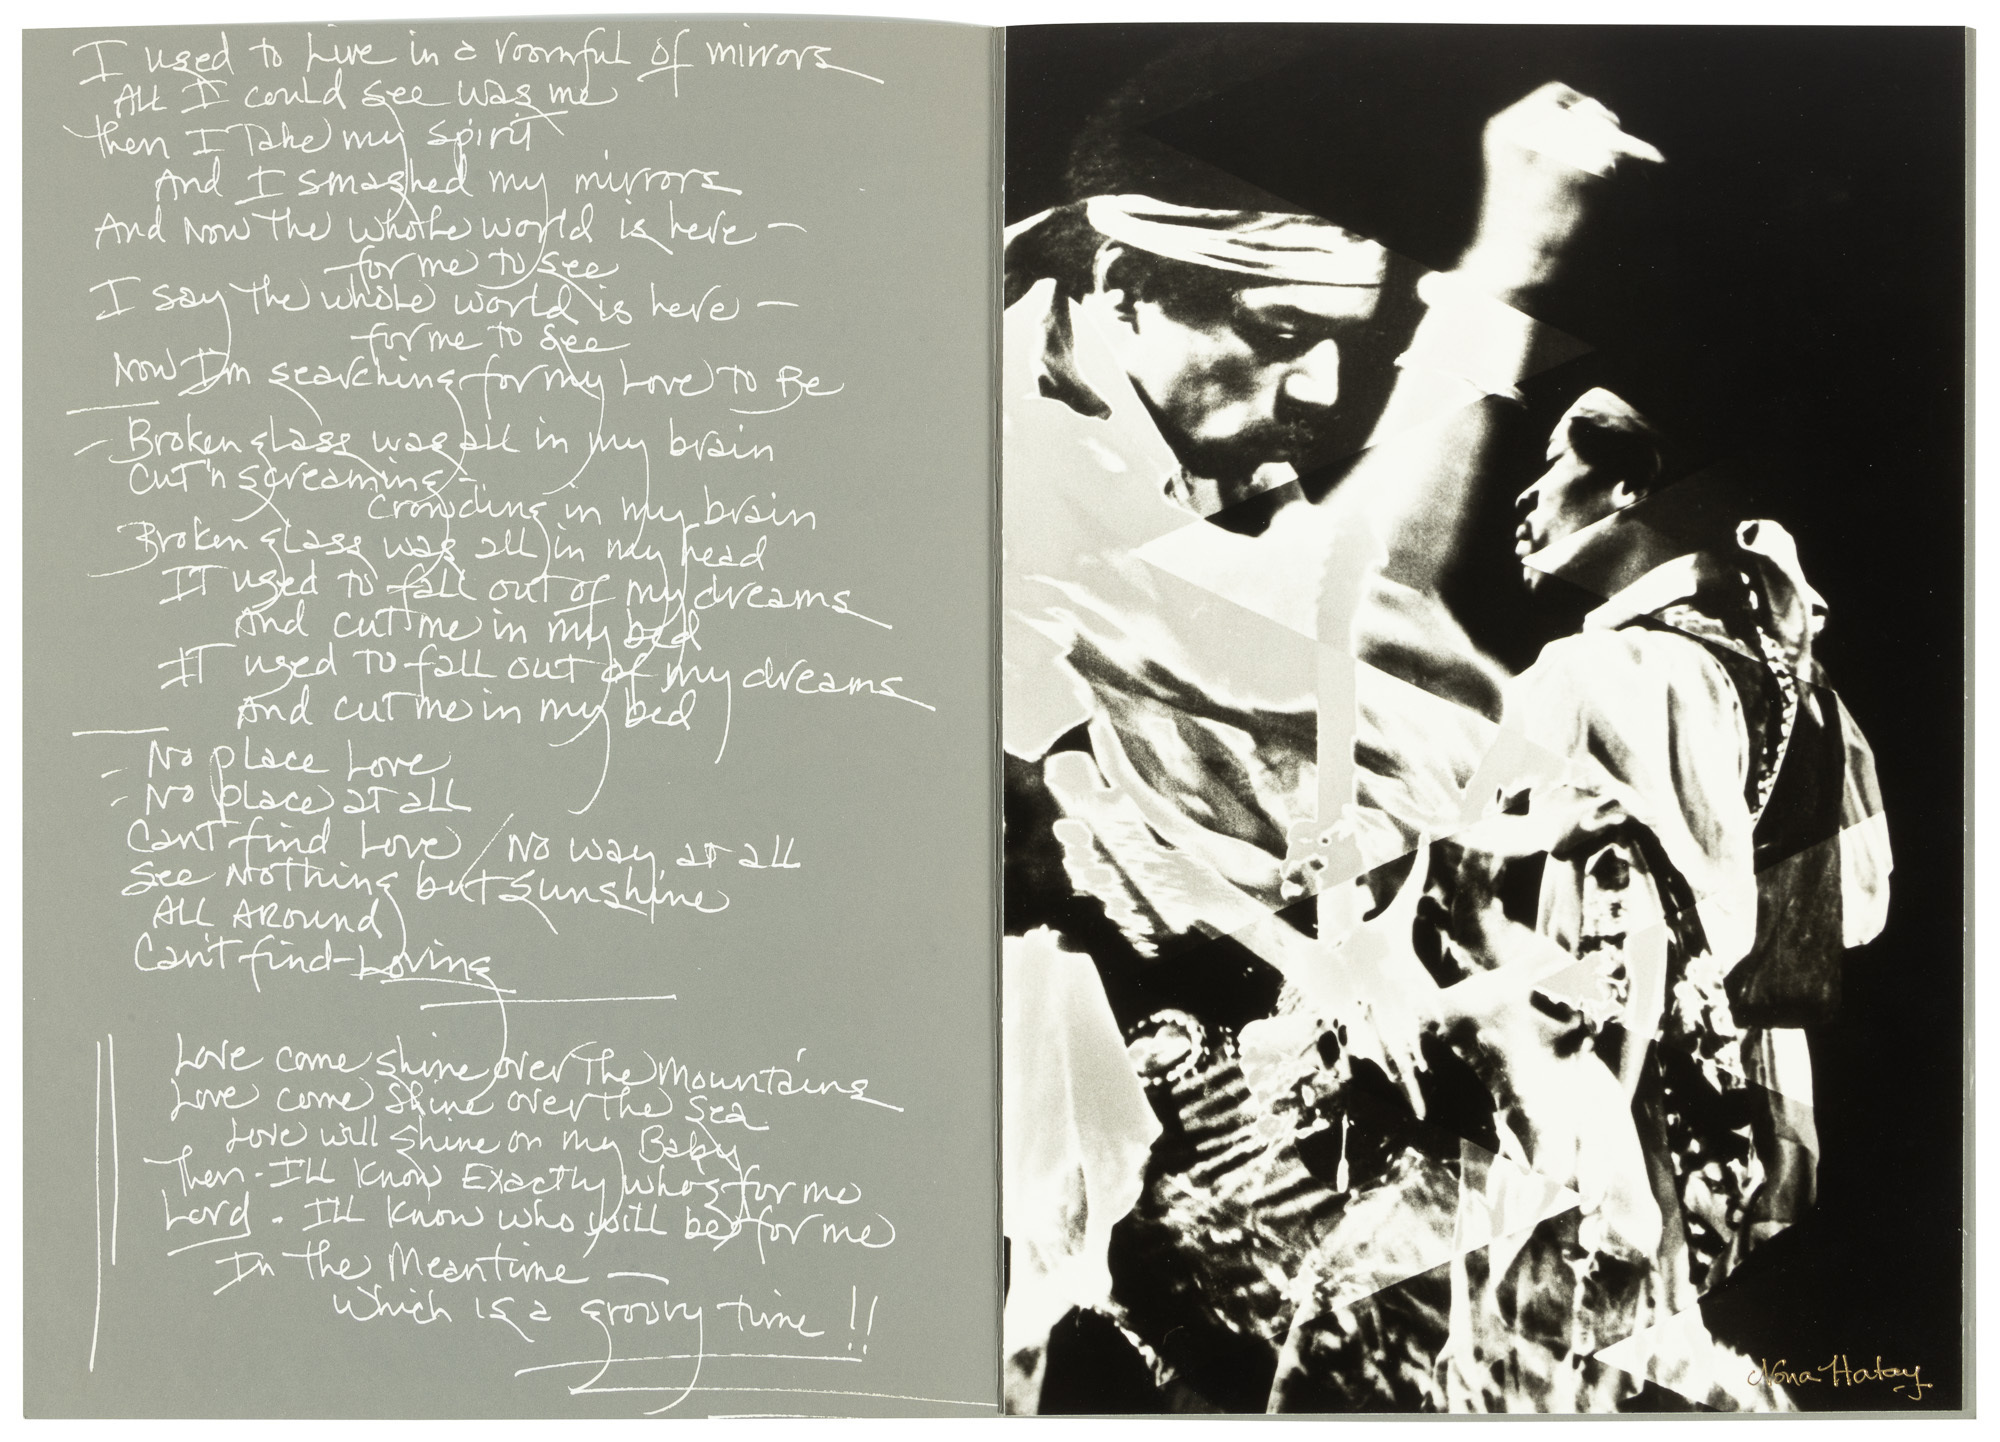 I used to Live in a roomful of mirrors
ALL I could see was me
Then I Take my spirit
And I smashed my mirrors
And Now the whole world is here —
for me to see
I say the whole world is here —
for me to see
Now I'm searching for my Love To Be
- Broken glass was all in my brain
Cut 'n screaming -
crowding in my brain
Broken glass was all in my head
IT used to fall out of my dreams
And cut me in my bed
IT used To fall out of my dreams
And cut me in my bed
- No place Love
- No place at all
Can't find Love / No way at all
See Nothing but sunshine
ALL AROUND
Can't find - Loving
Love come shine over the Mountains
Love come Shine over the Sea
Love will shine on my Baby
Then - I'll know Exactly who's for me
Lord - I'll know who will be for me
In the Meantime —
which is a groovy time !!
Nona Hatay